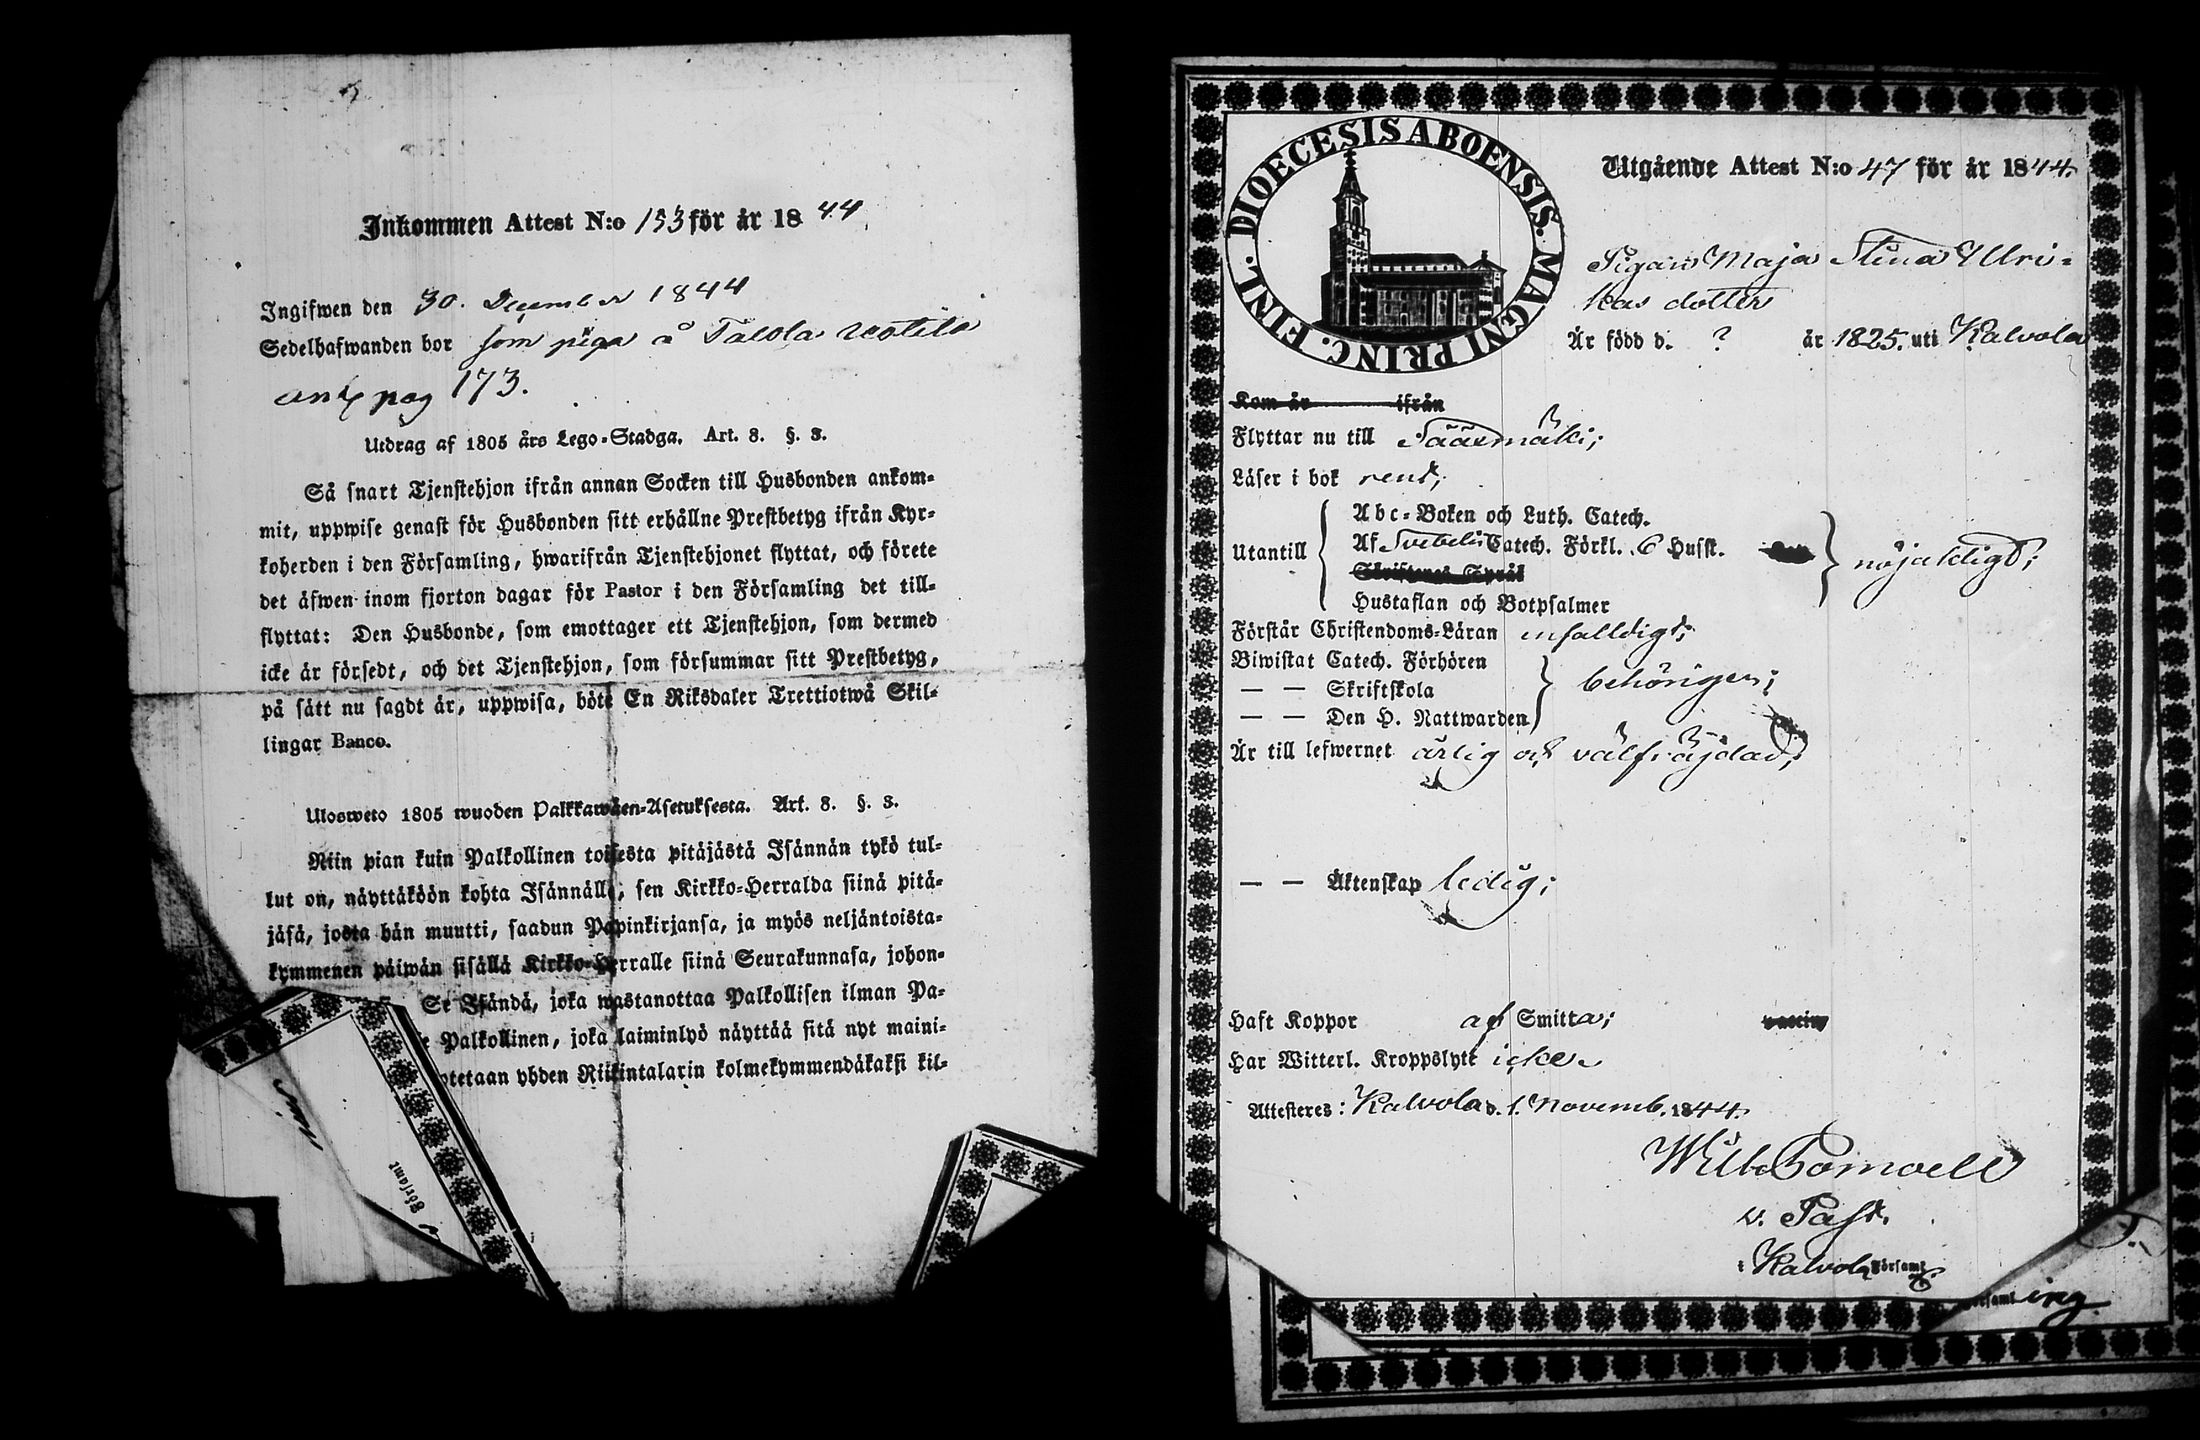 Inkommen Attest N:o 153 för år 1844
Ingifwen den 30. December 1844
Sedelhafwanden bor som piga å Talola
ant pag 173.
Utdrag af 1805 års Lego-Stadga. Art. 8. §. 3.
Så snart Tjenstehjon ifrån annan Socken till Husbonden ankom-
mit, uppwise genast för Husbonden sitt erhållne Prestbetyg ifrån Kyr-
koherden i den Församling, hwarifrån Tjenstehjonet flyttat, och förete
det äfwen inom fjorton dagar för Pastor i den Församling det till-
flyttat: Den Husbonde, som emottager ett Tjenstehjon, som dermed
icke är försedt, och det Tjenstehjon, som försummar sitt Prestbetyg,
på sätt nu sagdt är, uppwisa, böte En Riksdaler Trettiotwå Skil-
lingar Banco.
Ulosweto 1805 wuoden Palkkawäen-Asetuksesta. Art. 8. §. 3.
Niin pian kuin Palkollinen toisesta pitäjästä Isännän tykö tul-
lut on, näyttäköön kohta Isännälle, sen Kirkko-Herralda siinä pitä-
jäsä, josta hän muutti, saadun Papinkirjansa, ja myös neljäntoista-
kymmenen päiwän sisällä Kirkko-Herralle siinä Seurakunnasa, johon-
Se Isändä, joka wastanottaa Palkollisen ilman Pa-
e Palkollinen, joka laiminlyö näyttää sitä nyt maini-
otetaan yhden Riikintalarin kolmekymmendäkaksi kil-
Församl
DIOECESIS ABOENSIS. MAGNI PRINC. FINL.
Utgående Attest N:o 47 för år 1844.
Pigan Maja Stina Ulri-
kas dotter
Är född d. ? år 1825. uti Kalvola
Kom år ifrån
Flyttar nu till Sääxmäki;
Läser i bok rent;
Utantill
Abc-Boken och Luth. Catech.
Af Svebelii Catech. Förkl. 6 Husst.
Skriftenes Språk
Hustaflan och Botpsalmer
nöjaktigt;
Förstår Christendoms-Läran enfalldigt;
Biwistat Catech. Förhören
— — Skriftskola
— — Den H. Nattwarden
behörigen;
Är till lefwernet ärlig och välfräjdad;
— — Äktenskap ledig;
Haft Koppor af Smitta; vaccin
Har Witterl. Kroppslyte icke.
Attesteres: Kalvola d. 1. Novemb. 1844.
Wilh. Pomoell
v. Past.
i Kalvola Församl.
Församl ing